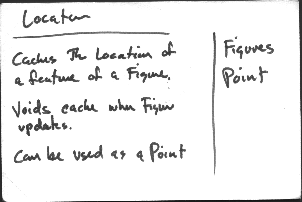 Location
Caches The Location of
a feature of a Figure.
Voids cache when Figure
updates.
Can be used as a Point
Figures
Point